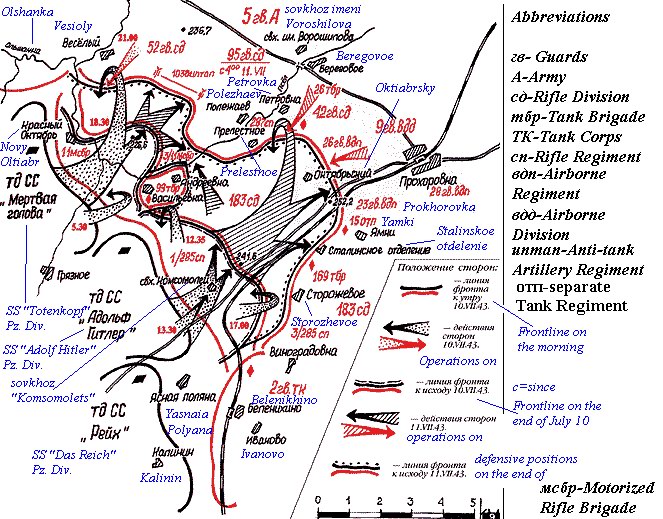 Olshanka
Vesioly
Ольшанка
Весёлый
21.00
52гв.сд
236,7
5 гв.А
sovkhoz imeni
Voroshilova
свх. им. Ворошилова
95гв.сд
с 4:00 11.VII
Beregovoe
Береговое
Petrovka
Polezhaev
Полежаев
Петровка
26тбр
Oktiabrsky
42гв.сд
9гв.вдд
Прелестное
Prelestnoe
26гв.вдп
Красный
Октябрь
18.30
Novy
Oltiabr
11мсбр
Андреевка
99тбр
Васильевка
183сд
Октябрьский
252,2
Прохоровка
28гв.вдп
Prokhorovka
23гв.вдп
15отп
Yamki
Ямки
Stalinskoe
otdelenie
Сталинское отделение
тд СС
„Мертвая
голова"
5.30
12.35
1/285сп
241,6
свх. Комсомолец
Грязное
169тбр
Сторожевое
183сд
Storozhevoe
3/285сп
SS "Totenkopf"
Pz. Div.
тд СС
„Адольф
Гитлер"
13.30
17.00
SS "Adolf Hitler"
Pz. Div.
sovkhoz
"Komsomolets"
Виноградовка
2гв.тк
Belenikhino
Беленихино
Ясная поляна
Yasnaia
Polyana
Иваново
Ivanovo
тд СС
„Рейх"
SS "Das Reich"
Pz. Div.
Калинин
Kalinin
Положение сторон:
— линия
фронта
к утру
10.VII.43.
Frontline on
the morning
— действия
сторон
10.VII.43.
Operations on
— линия фронта
к исходу 10.VII.43.
c=since
Frontline on the
end of July 10
— действия
сторон
11.VII.43.
operations on
— линия фронта
к исходу 11.VII.43.
defensive positions
on the end of
0 1 2 3 4 5
Abbreviations
гв- Guards
А-Army
сд-Rifle Division
тбр-Tank Brigade
ТК-Tank Corps
сп-Rifle Regiment
вдп-Airborne
Regiment
вдд-Airborne
Division
иптап-Anti-tank
Artillery Regiment
отп-separate
Tank Regiment
мсбр-Motorized
Rifle Brigade